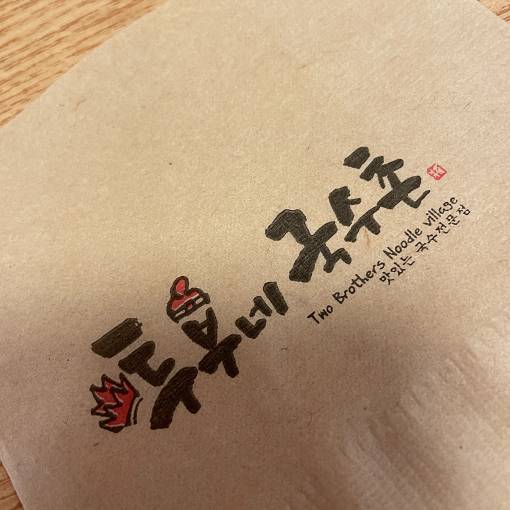 국수촌
Two Brothers Noodle village
맛있는 국수전문점